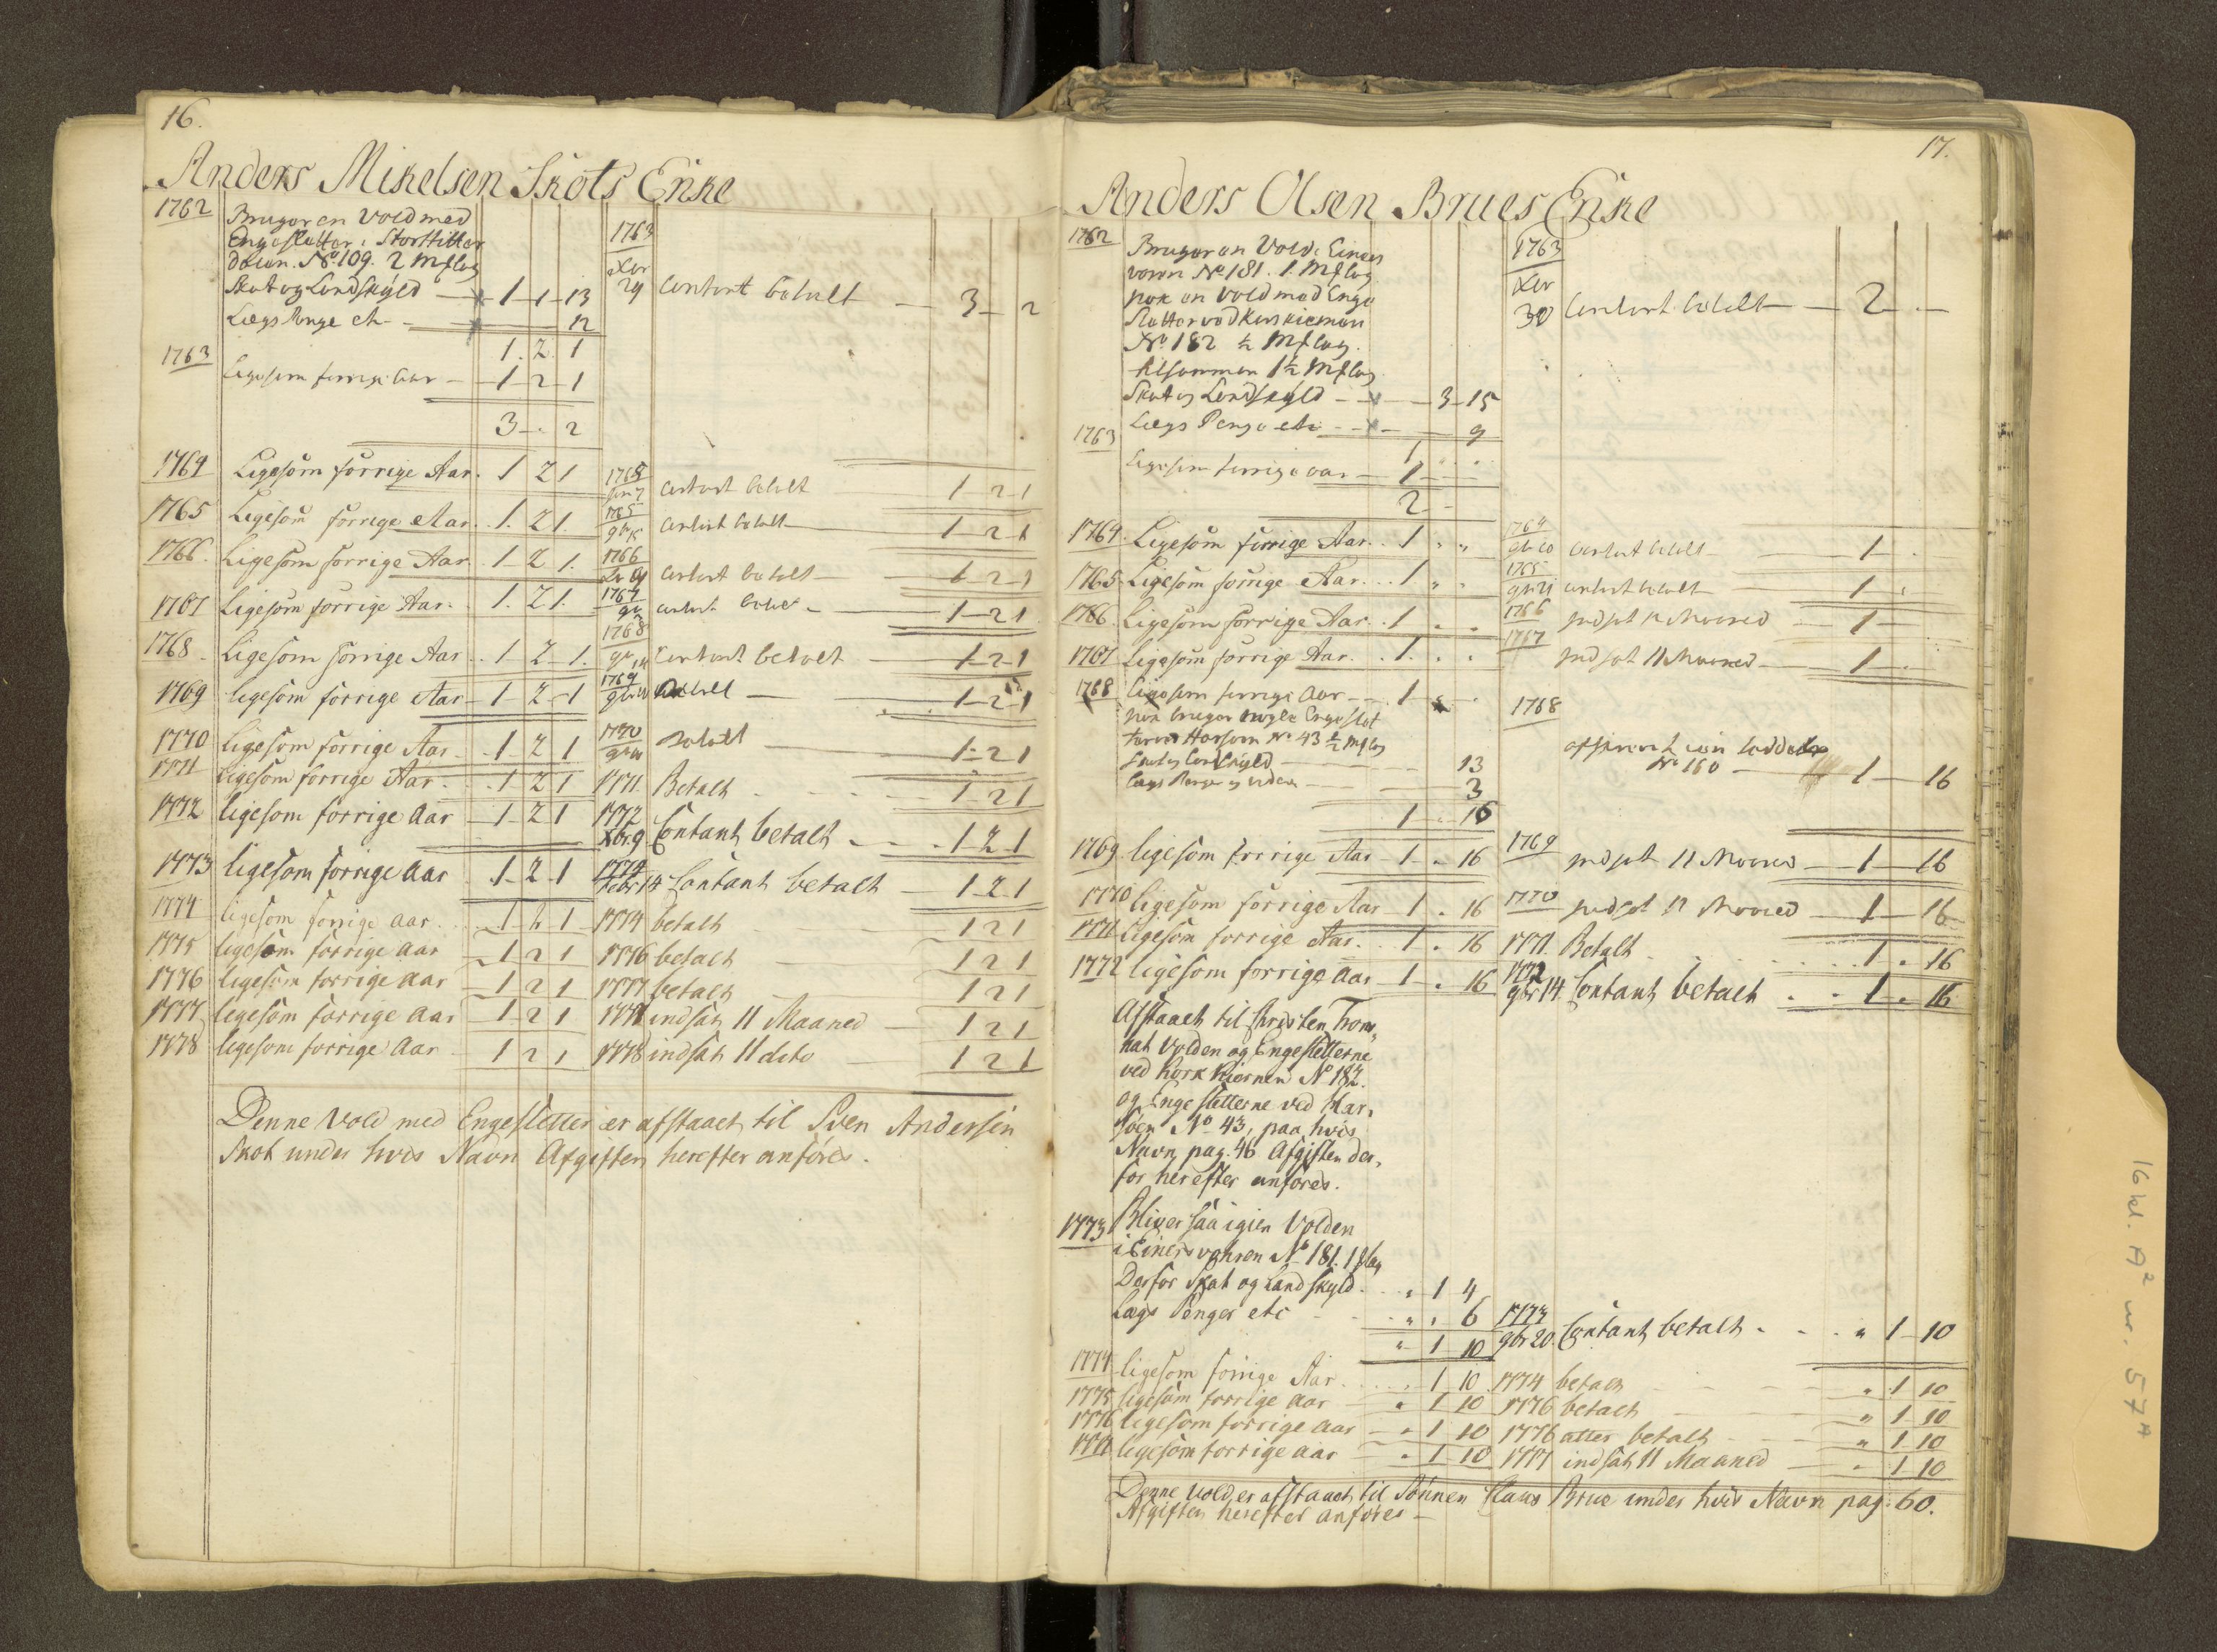 16.
Anders Mikelsen Skots Enke
1762 Bruger en Vold med
Engesletter i Storhitter
dalen. No 109. 2 Mslag
Skat og Landskyld — 1 - 1 - 13
Lægs Penge etc — 12
1. 2. 1
1763 Ligesom forrige Aar — 1 - 2 - 1
3 - . 2
1763
Xbr
29 Contant betalt — 3 - 2
1764 Ligesom forrige Aar. 1 2 1
1765 Ligesom forrige Aar. 1. 2 1.
1766. Ligesom forrige Aar 1 - 2 1.
1767 Ligesom forrige Aar. 1. 2 1.
1768 Ligesom forrige Aar 1 - 2 - 1.
1769 ligesom forrige Aar - 1 - 2 - 1
1770 ligesom forrige Aar. 1 2 1
1771 ligesom forrige Aar. 1 2 1
1772 ligesom forrige Aar 1 - 2 1
1773 ligesom forrige Aar 1 - 2 - 1
1774 ligesom forrige Aar. 1 2 1
1775 ligesom forrige Aar 1 2 1
1776 ligesom forrige Aar 1 2 1
1777 ligesom forrige Aar 1 2 1
1778 ligesom forrige Aar 1 2 1
contant betalt 1 - 2 - 1
1765 contant betalt 1 - 2 1
1766 contant betalt 1 - 2 - 1
1767 contant betalt 1 - 2 1
1768
14 Contant betalt 1 - 2 - 1
1769 betalt 1 - 2 - 1
1770 betalt 1 - 2 - 1
1771. Betalt 1 - 2 1
1772
Xbr. 9 Contant betalt 1 2 1
1774
Febr 14 Contant betalt 1 - 2 1
1774 betalt 1 2 1
1776 betalt 1 2 1
1777 betalt 1 2 1
indsat 11 Maaned 1 2 1
1778 indsat 11 dito 1 2 1
Denne Vold med Engesletter er afstaaet til Sven Andersen
Skot under hvis Navn Afgiften herefter anføres.
17.
Anders Olsen Brues Enke
1762 Bruger en Vold i Einers
voren No 181. 1. Mslag
nok en Vold med Enge
Sletter ved
No 182 ½ Mslag.
tilsammen 1½ Mslag
Skat og Landskyld — 3 - 15
Lægs Penge etc — 9
1
1763 Ligesom forrige aar — 1
2
1763
Xbr
30 Contant betalt — 2
1764. Ligesom forrige Aar. 1 " "
1765 Ligesom forrige Aar. 1 " "
1766. Ligesom forrige Aar. 1 . .
1767 Ligesom forrige Aar. 1. . .
1768 Ligesom forrige Aar — 1
nok bruger nogle Engeslet
No 43 ½ Mslag
Skat og Landskyld — 13
Lægs Penge — 3
1 16
1769 ligesom forrige Aar - 1 - . 16
1770 ligesom forrige Aar 1 . 16
1771 ligesom forrige Aar. 1 . 16
1772 ligesom forrige Aar - 1 - . 16
1764 contant betalt 1
1765 contant betalt 1
1766 indsat 11 Maaned 1
1767 indsat 11 Maaned 1
1768
No 160 — 1 — 16
1769 indsat 11 Maaned 1 — 16
1770 indsat 11 Maaned 1 — 16
1771. Betalt 1 . 16
1772
9br 14. Contant betalt 1 . 16
Afstaaet til Christen Trom,
nat Volden og Engesletterne
ved Kork Kiernen No 182.
og Engesletterne ved Har,
søen No 43, paa hvis
Navn pag. 46 Afgiften der,
for herefter anføres.
1773 Bliver saa igien Volden
i Einersvohren No 181. 1 slag
Derfor Skat og Landskyld. " 1 4
Lægs Penger etc " . 6
" 1 10
1773
9br 20. Contant betalt " 1 - 10
1774 ligesom forrige Aar " 1 10
1775 ligesom forrige Aar " 1 10
1776 ligesom forrige Aar " 1 10
1777 ligesom forrige Aar " 1 10
1774 betalt " 1 10
1776 betalt " 1 10
1776 atter betalt " 1 10
1777 indsat 11 Maaned " 1 10
Denne Vold er afstaaet til Sønnen Claus Brue under hvis Navn pag: 60.
Afgiften herefter anføres —
16 kl. A² nr. 57 A